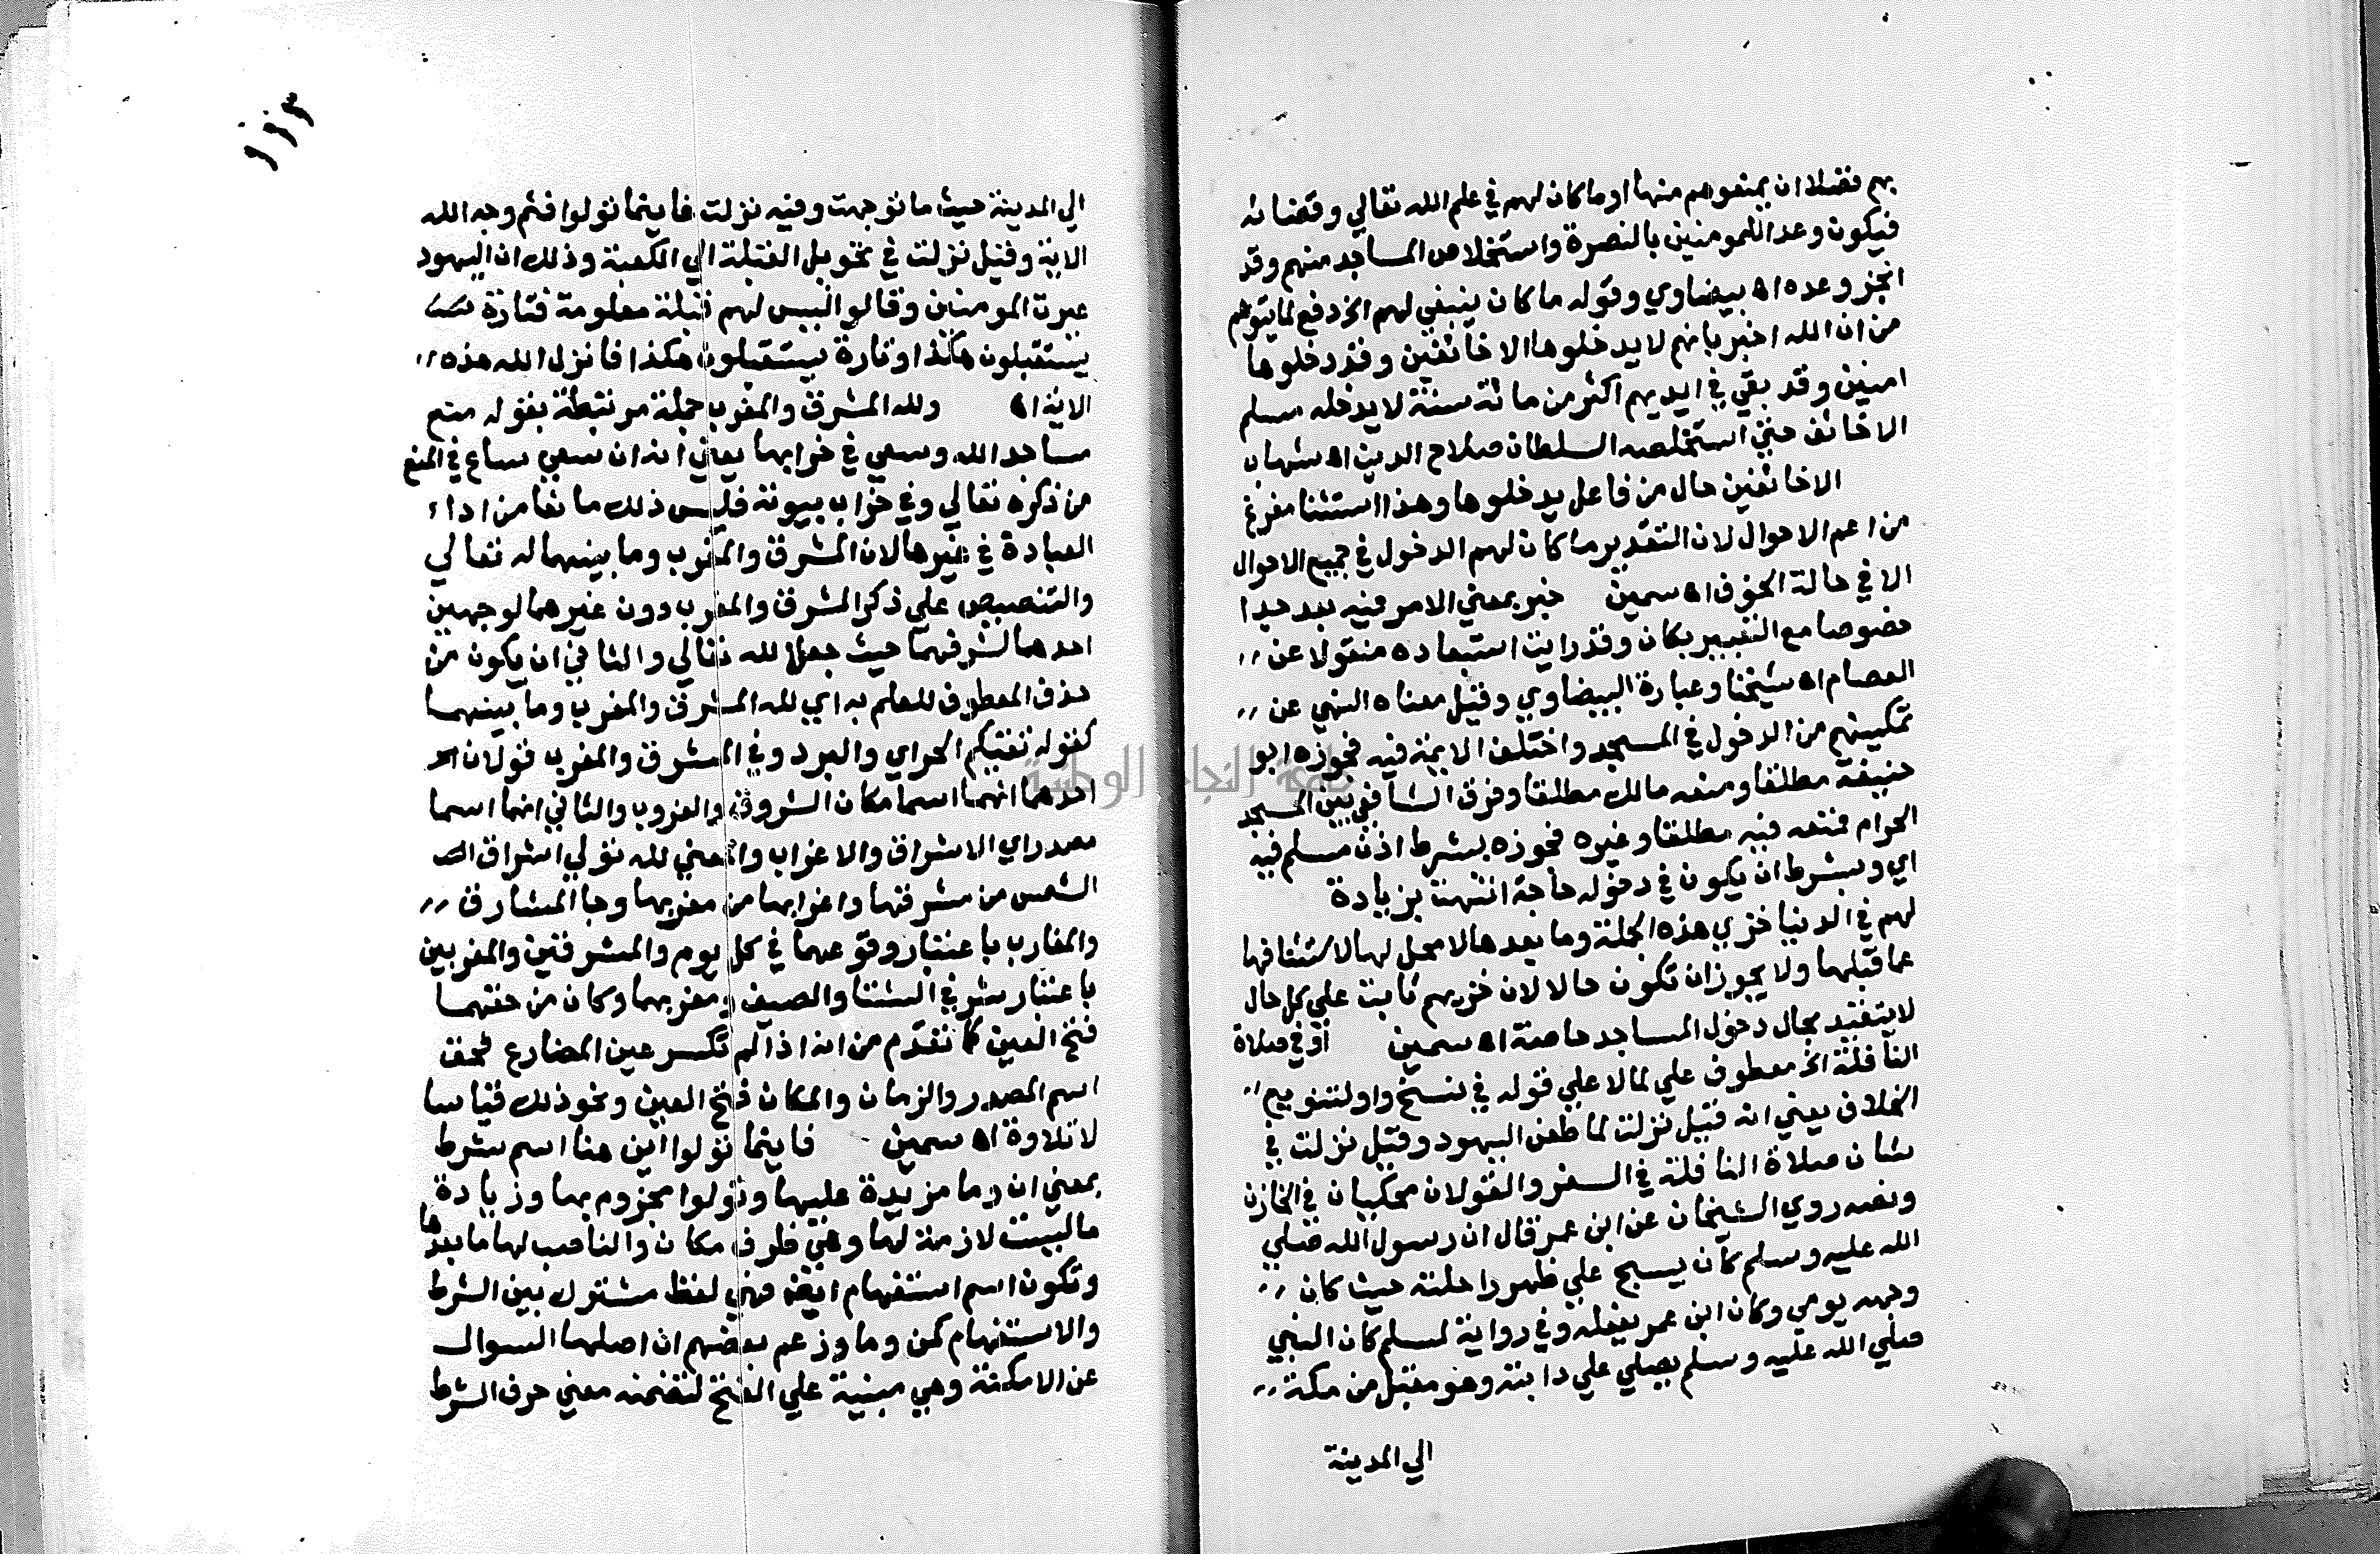 بهم فضلا ان يمنعوهم منها او ما كان لهم في علم الله تعالي وقضائه
فيكون وعد اللمومنين بالنصرة واستخلاص المساجد منهم وقد
انجز وعده اه بيضاوي وقوله ما كان ينبغي لهم الخ دفع لما يتوهم
من ان الله اخبر بانهم لا يدخلوها الا خائفين وقد دخلوها
امنين وقد بقي في ايديهم اكثر من مائة سنة لا يدخله مسلم
الا خائف حتي استخلصه السلطان صلاح الدين اه شهاب
الا خائفين حال من فاعل يدخلوها وهذا استثنا مفرغ
من اعم الاحوال لان التقدير ما كان لهم الدخول في جميع الاحوال
الا في حالة الخوف اه سمين خبر بمعني الامر فيه بعد جدا
خصوصا مع التعبير بكان وقد رايت استبعاده منقولا عن
العصام اه شيخنا وعبارة البيضاوي وقيل معناه النهي عن
تمكينهم من الدخول في المسجد واختلف الايمة فيه فجوزه ابو
حنيفة مطلقا ومنعه مالك مطلقا وفرق الشافعي بين المسجد
الحرام فمنعه فيه مطلقا وغيره فجوزه بشرط اذن مسلم فيه
اي وبشرط ان يكون في دخوله حاجة انتهت بزيادة
لهم في الدنيا خزي هذه الجملة وما بعدها لا محل لها لاستئنافها
عما قبلها ولا يجوز ان تكون حالا لان خزيهم ثابت علي كل حال
لا يتقيد بحال دخول المساجد خاصة اه سمين او في صلاة
النافلة الخ معطوف علي لما لا علي قوله في نسخ واو لتنويع
الخلاف يعني انه قيل نزلت لما طعن اليهود وقيل نزلت في
شان صلاة النافلة في السفر والقولان محكيان في الخازن
ونصه روي الشيخان عن ابن عمر قال ان رسول الله صلي
الله عليه وسلم كان يسبح علي ظهر راحلته حيث كان
وجهه يومي وكان ابن عمر يفعله وفي رواية لمسلم كان النبي
صلي الله عليه وسلم يصلي علي دابته وهو مقبل من مكة
الي المدينة
١١٣
الي المدينة حيث ما توجهت وفيه نزلت فاينما تولوا فثم وجه الله
الاية وقيل نزلت في تحويل القبلة الي الكعبة وذلك ان اليهود
عيرت المومنين وقالوا ليس لهم قبلة معلومة فتارة
يستقبلون هكذا وتارة يستقبلون هكذا فانزل الله هذه
الاية اه ولله المشرق والمغرب جملة مرتبطة بقوله منع
مساجد الله وسعي في خرابها يعني انه ان سعي ساع في المنع
من ذكره تعالي وفي خراب بيوته فليس ذلك مانعا من اداء
العبادة في غيرها لان المشرق والمغرب وما بينهما له تعالي
والتنصيص علي ذكر المشرق والمغرب دون غيرهما لوجهين
احدهما لشرفهما حيث جعلا لله تعالي والثاني ان يكون من
حذف المعطوف للعلم به اي لله المشرق والمغرب وما بينهما
كقوله تقيكم الحر اي والبرد وفي المشرق والمغرب قولان
احدهما انهما اسما مكان الشروق والغروب والثاني انهما اسما
مصدر اي الاشراق والاغراب والمعني لله تولي اشراق
الشمس من مشرقها واغرابها من مغربها وجا المشارق
والمغارب باعتبار وقوعهما في كل يوم والمشرقين والمغربين
باعتبار مشرقي الشتا والصيف ومغربهما وكان من حقهما
فتح العين كما تقدم من انه اذا لم تكسر عين المضارع فحق
اسم المصدر والزمان والمكان فتح العين ونحو ذلك قياسا
لا تلاوة اه سمين فاينما تولوا اين هنا اسم شرط
بمعني ان وما مزيدة عليها وتولوا مجزوم بها وزيادة
ما ليست لازمة لها وهي ظرف مكان والناصب لها ما بعدها
وتكون اسم استفهام ايضا فهي لفظ مشترك بين الشرط
والاستفهام كمن وما وزعم بعضهم ان اصلها السوال
عن الامكنة وهي مبنية علي الفتح لتضمنه معني حرف الشرط
جامعة النجاح الوطنية